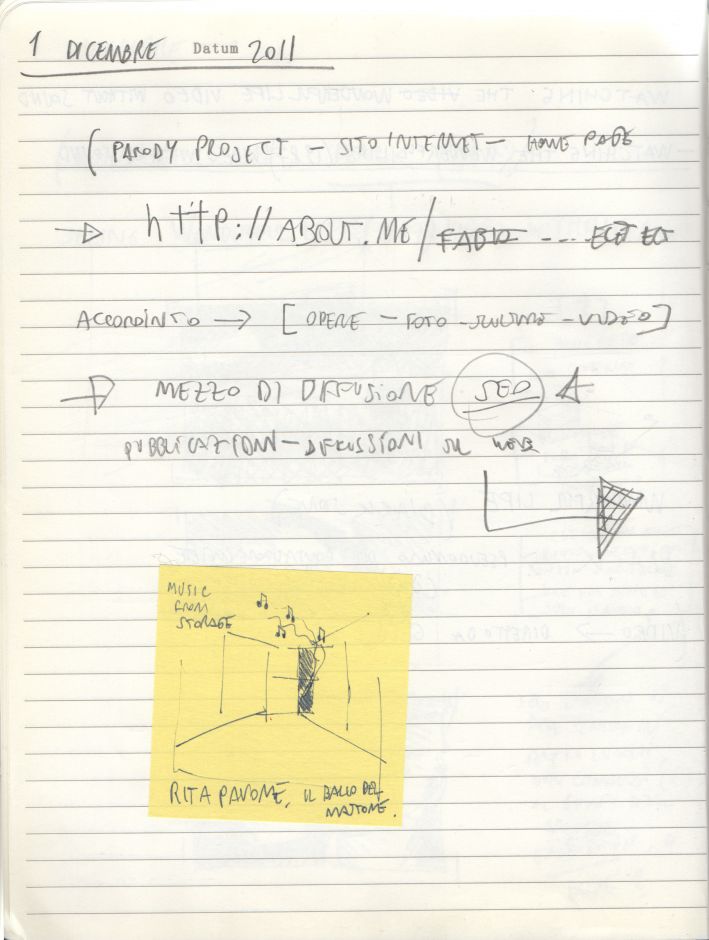 1 DICEMBRE Datum 2011
(PARODY PROJECT - SITO INTERNET - HOME PAGE
http://ABOUT.ME/FABIO ....
→ [OPERE - FOTO - - VIDEO]
MEZZO DI DIFFUSIONE SEO
PUBBLICAZIONI - SUL WEB
MUSIC
FROM
STORAGE
RITA PAVONE, IL BALLO DEL
MATTONE.